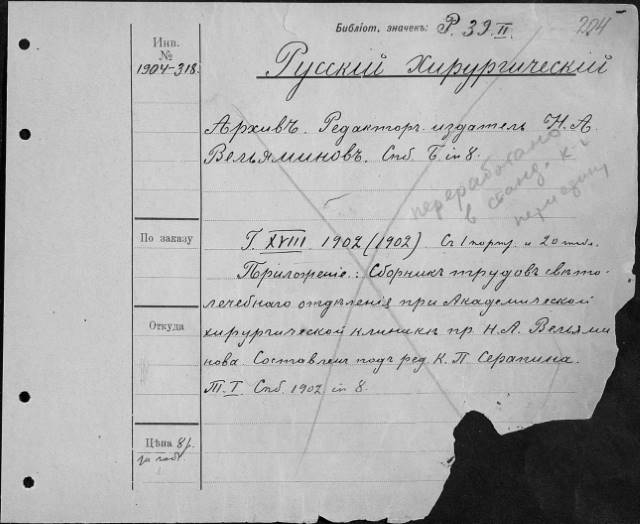 Библiот. значекъ: Р. 39 II.
204
Инв.
№
1904-318.
Русскiй Хирургическiй
Архивъ. Редакторъ издатель Н. А.
Вельяминовъ. Спб. Б. in 8.
переработано
в станд. к-
По заказу
Г. XVIII 1902 (1902) Съ 1 портр. и 20 табл.
Приложенiе: Сборникъ трудовъ свѣто-
лечебнаго отдѣленiя при Академической
Откуда
хирургической клиникѣ пр. Н. А. Вельями
нова. Составленъ подъ ред. К. П. Серапина.
Т. I Спб. 1902 in 8.
Цѣна 8 р.
за годъ.